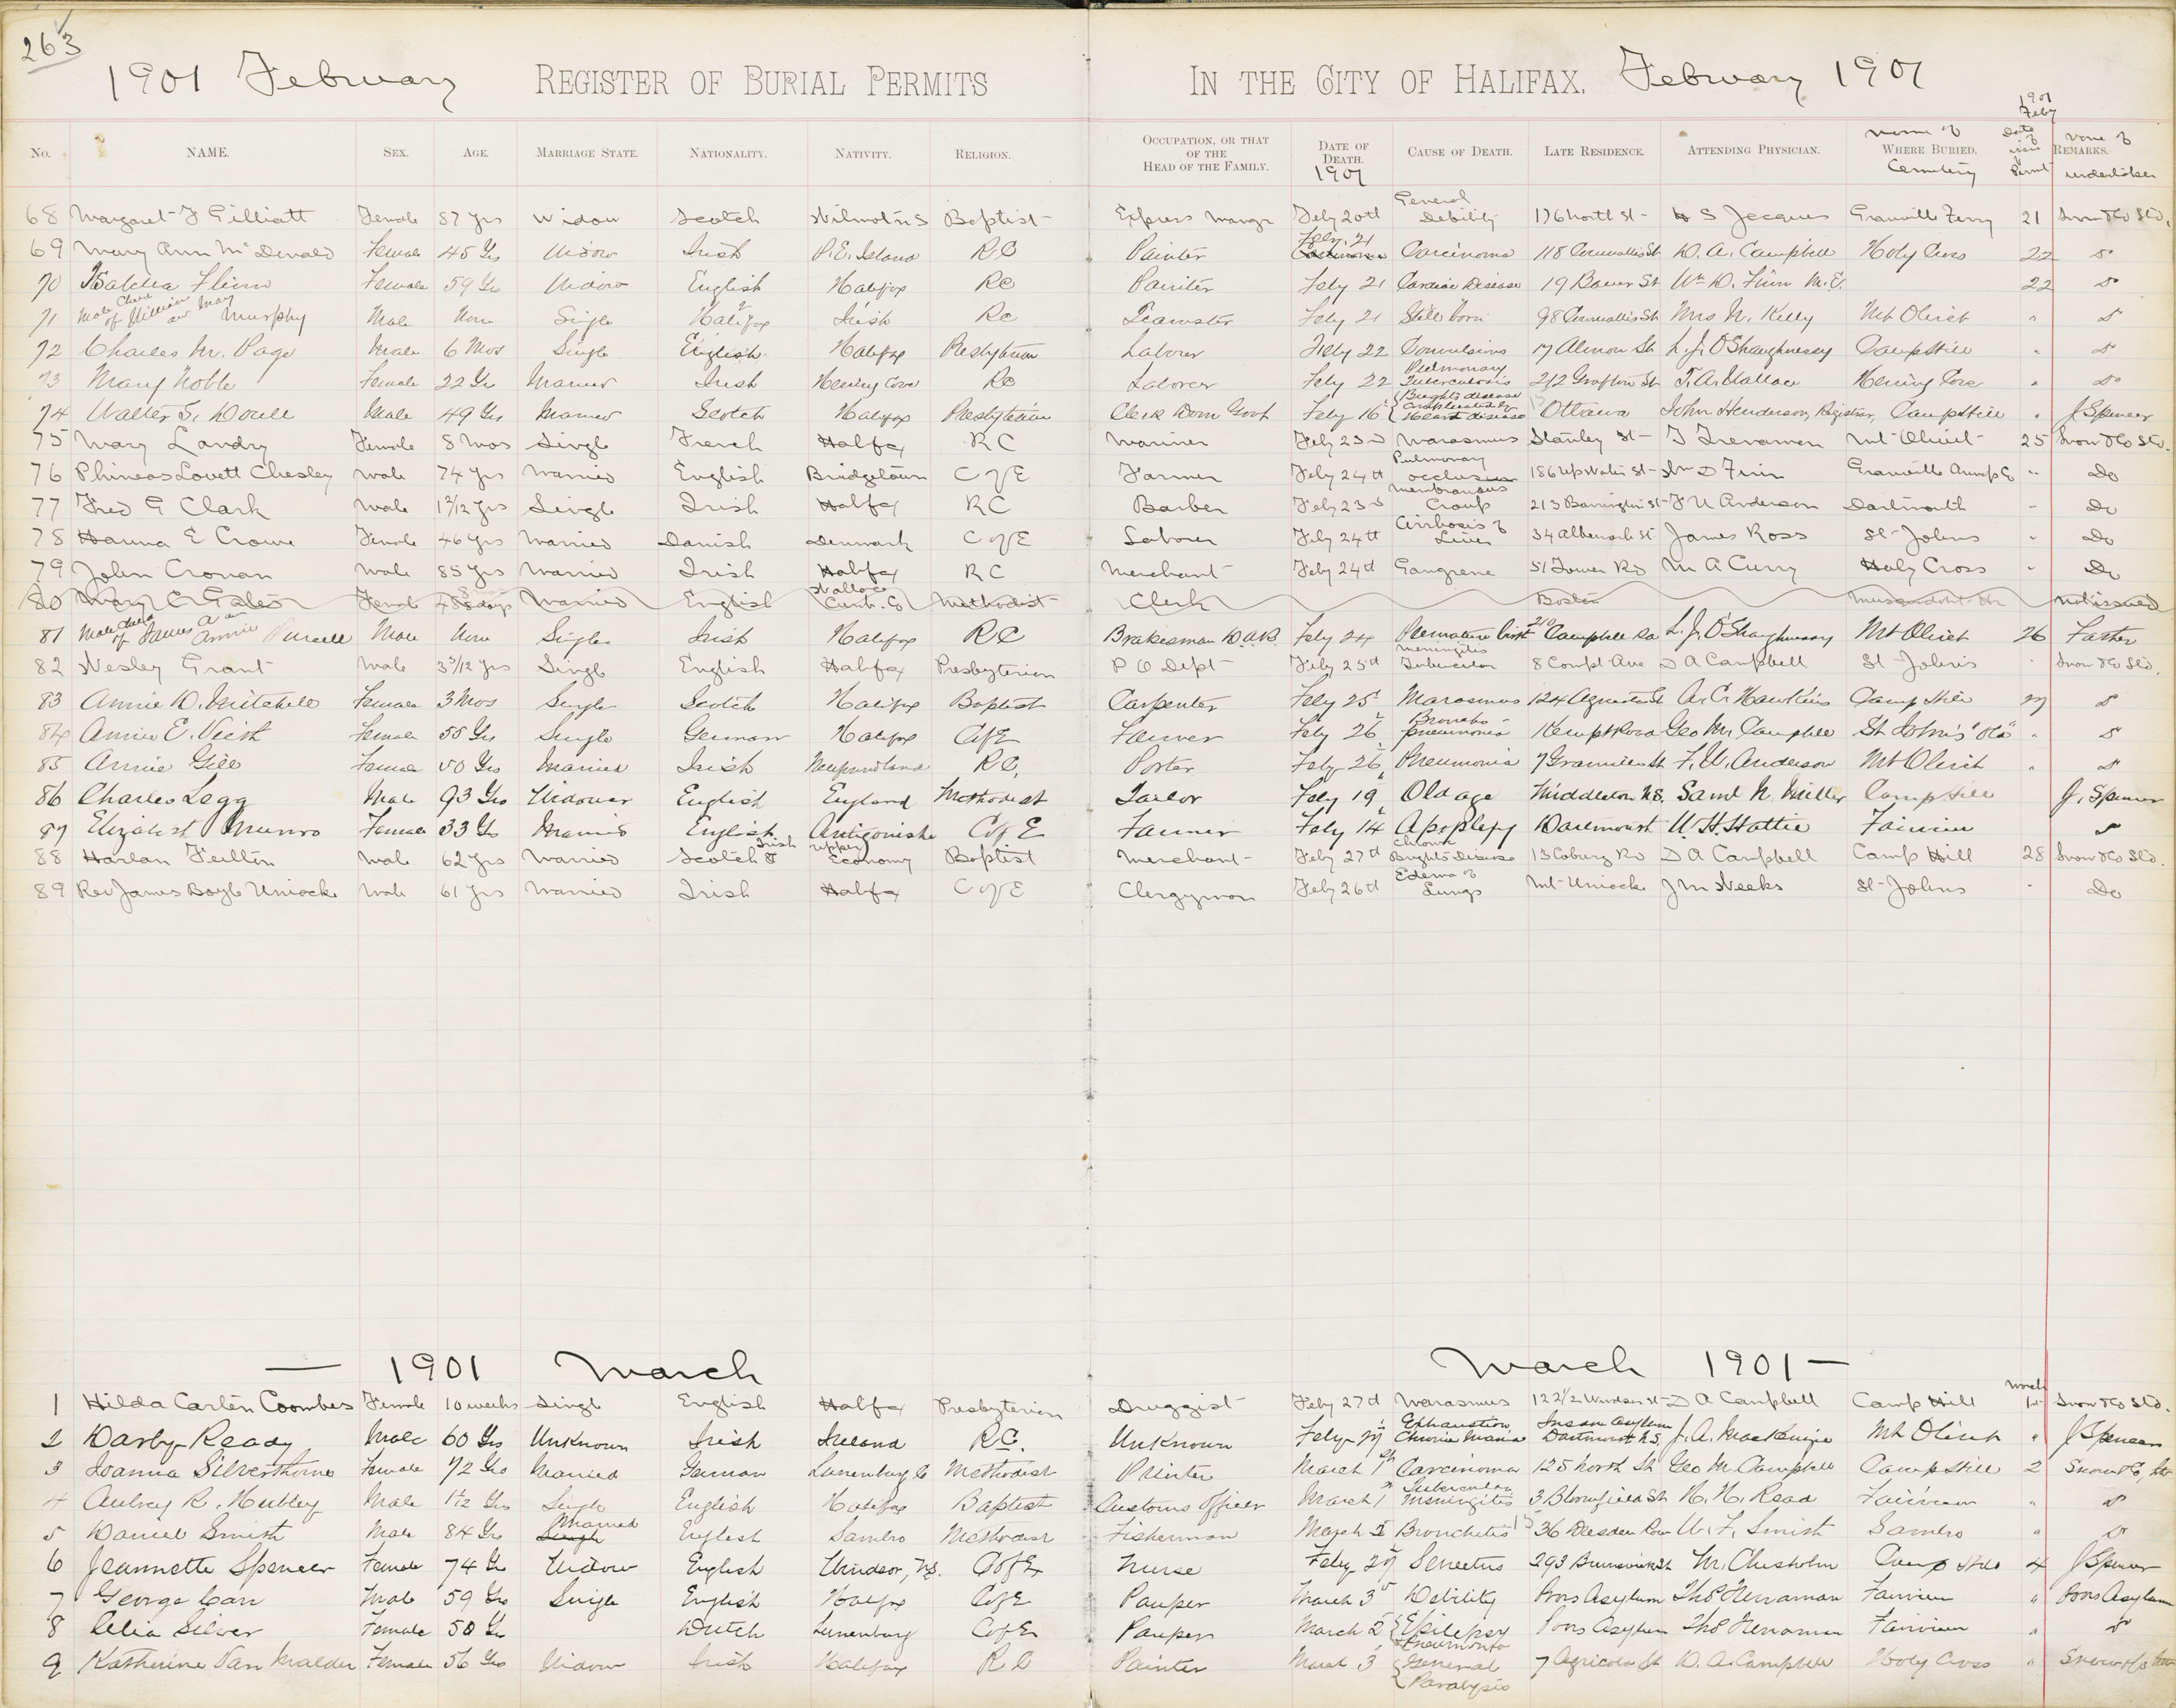 263
1901 February REGISTER OF BURIAL PERMITS IN THE CITY OF HALIFAX. February 1901
1901 Feby
No. NAME. SEX. AGE. MARRIAGE STATE. NATIONALITY. NATIVITY. RELIGION. OCCUPATION, OR THAT OF THE HEAD OF THE FAMILY. DATE OF DEATH. 1901 CAUSE OF DEATH. LATE RESIDENCE. ATTENDING PHYSICIAN. Name of WHERE BURIED. Cemetery Date of issue of Permit Name of REMARKS. undertaker
68 Margaret J Gilliatt Female 87 yrs Widow Scotch Wilmot N S Baptist Express Mangr Feby 20th General Debility 176 North St H S Jacques Granville Ferry 21 Snow & Co Ltd.
69 Mary Ann McDonald Female 45 Yrs Widow Irish P. E. Island RC Painter Feby. 21 Carcinoma 118 Cornwallis St D. A. Campbell Holy Cross 22 do
70 Flinn Female 59 Yrs Widow English Halifax RC Painter Feby 21 Cardiac Disease 19 Bauer St Wm D. Finn M.E. 22 do
71 Male Child of William and May Murphy Male None Single Halifax Irish RC Teamster Feby 21 Still born 98 Cornwallis St Mrs N. Kelly Mt Olivet " do
72 Charles M. Page Male 6 Mos Single English Halifax Presbyterian Laborer Feby 22 Convulsions 17 Almon St L. J. O'Shaughnessy Camp Hill " do
73 Mary Noble Female 22 Yrs Married Irish Herring Cove RC Laborer Feby 22 Pulmonary Tuberculosis 212 Grafton St T. A. Wallace Herring Cove " do
74 Walter S. Doull Male 49 Yrs Married Scotch Halifax Presbyterian Clerk Dom Govt Feby 16 Brights disease Complicated by Heart disease Ottawa John Henderson, Registrar, Camp Hill " J Spencer
75 Mary Landry Female 8 mos Single French Halifax R C Mariner Feby 23d Marasmus Stanley St T Trenaman Mt Olivet 25 Snow & Co Ltd.
76 Phineas Lovett Chesley Male 74 yrs Married English Bridgetown C of E Farmer Feby 24th Pulmonary occlusion 186 Up Water St Wm D Finn Granville Annap Co " Do
77 Fred G Clark Male 1 7/12 yrs Single Irish Halifax R C Barber Feby 23d Membranous Croup 213 Barrington St F U Anderson Dartmouth " Do
78 Hanna E Crowe Female 46 yrs Married Danish Denmark C of E Laborer Feby 24th Cirrhosis of Liver 34 Albemarle St James Ross St Johns " Do
79 John Cronan Male 85 yrs Married Irish Halifax R C Merchant Feby 24th Gangrene 51 Tower Rd M A Curry Holy Cross " Do
80 Mary C Gates Female Married English Wallace Cumb. Co Methodist Clerk Boston not issued
81 Male Child of James A and Annie Purcell Male None Single Irish Halifax R.C Brakesman D.A.R. Feby 24 Premature birth 210 Campbell Rd L. J. O'Shaughnessy Mt Olivet 26 Father
82 Wesley Grant Male 3 5/12 yrs Single English Halifax Presbyterian P O Dept Feby 25th Meningitis Tubercular 8 Compt Ave D A Campbell St Johns " Snow & Co Ltd.
83 Annie D. Mitchell Female 3 Mos Single Scotch Halifax Baptist Carpenter Feby 25 Marasmus 124 Agricola St A. C. Hawkins Camp Hill 27 do
84 Annie E. Veith Female 55 Yrs Single German Halifax C of E Farmer Feby 26 Broncho-pneumonia Kempt Road Geo M. Campbell St John's "Old" " do
85 Annie Gill Female 50 Yrs Married Irish Newfoundland R.C. Porter Feby 26 Pneumonia 7 Granville St F. U. Anderson Mt Olivet " do
86 Charles Legg Male 93 Yrs Widower English England Methodist Tailor Feby 19 Old age Middleton N.S. Saml N. Miller Camp Hill J. Spencer
87 Elizabeth Munro Female 33 Yrs Married English Antigonishe C of E Farmer Feby 14 Apoplexy Dartmouth W. H. Hattie Fairview do
88 Harlan Fulton Male 62 yrs Married Scotch & Irish Upper Economy Baptist Merchant Feby 27th Chronic Brights Disease 13 Coburg Rd D A Campbell Camp Hill 28 Snow & Co Ltd.
89 Rev James Boyle Uniacke Male 61 yrs Married Irish Halifax C of E Clergyman Feby 26th Edema of Lungs Mt Uniacke J M Weeks St Johns " Do
— 1901 March March 1901 —
1 Hilda Carlen Coombes Female 10 weeks Single English Halifax Presbyterian Druggist Feby 27th Marasmus 122 1/2 Windsor St D A Campbell Camp Hill March 1st Snow & Co Ltd.
2 Darby Ready Male 60 Yrs Unknown Irish Ireland R.C. Unknown Feby 27 Exhaustion Chronic Mania Insane Asylum Dartmouth N.S. J. A. MacKenzie Mt Olivet " J Spencer
3 Joanna Silverthorne Female 72 Yrs Married German Lunenburg Co Methodist Printer March 1st Carcinoma 125 North St Geo M. Campbell Camp Hill 2 Snow & Co, Ltd
4 Aubrey R. Hubley Male 1 1/12 Yrs Single English Halifax Baptist Customs Officer March 1 Tubercular Meningitis 3 Bloomfield St H. H. Read Fairview " do
5 Daniel Smith Male 84 Yrs Single Married English Sambro Methodist Fisherman March 1 Bronchitis 36 Dresden Row W. F. Smith Sambro " do
6 Jeannette Spencer Female 74 Yrs Widow English Windsor, N.S. C of E Nurse Feby 27 Senectus 293 Brunswick St M. Chisholm Camp Hill 4 J Spencer
7 George Carr Male 59 Yrs Single English Halifax C of E Pauper March 3 Debility Poors Asylum Thos Trenaman Fairview " Poors Asylum
8 Celia Silver Female 50 Yrs Dutch Lunenburg C of E Pauper March 2 Epilepsy Pneumonia Poors Asylum Thos Trenaman Fairview " do
9 Katherine Van Malder Female 56 Yrs Widow Irish Halifax R C Painter March 3 General Paralysis 7 Agricola St D. A. Campbell Holy Cross " Snow & Co